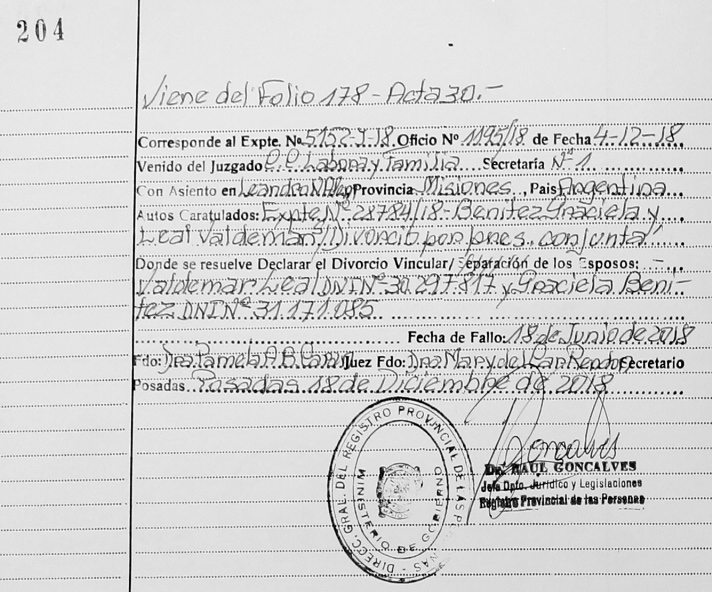 204
Viene del Folio 178 - Acta 30.-
Corresponde al Expte. Nº 5152-J-18 Oficio Nº 1195/18 de Fecha 4-12-18
Venido del Juzgado C.C. Laboral y Familia Secretaría Nº 1
Con Asiento en Leandro N. Alem Provincia Misiones, Pais Argentina
Autos Caratulados: Expte Nº 28784/18 - Benitez Graciela y
Leal Valdemar S/ Divorcio por pres. conjunta"
Donde se resuelve Declarar el Divorcio Vincular/ Separación de los Esposos: -
Valdemar Leal DNI Nº 30.297.817 y Graciela Beni-
tez DNI Nº 31.171.085
Fecha de Fallo: 18 de Junio de 2018
Fdo: Dra. Pamela A. B. Juez Fdo: Dra. Mary del Secretario
Posadas Posadas 18 de Diciembre de 2018
DIRECC. GRAL. DEL REGISTRO PROVINCIAL DE LAS
MINISTERIO DE GOBIERNO
Goncalves
Dr. RAUL GONCALVES
Jefe Dpto. Jurídico y Legislaciones
Registro Provincial de las Personas